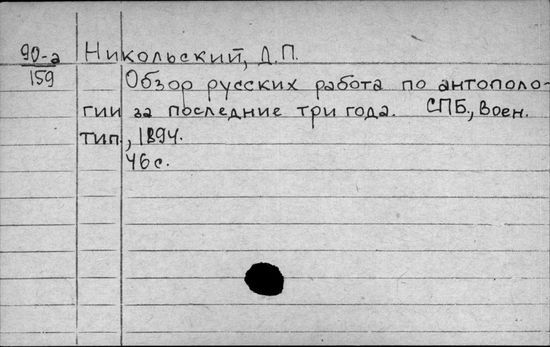 90-а Никольский, Д.П.
159 Обзор русских работа по антополо-
гии за последние три года. СПБ., Воен.
тип., 1894.
46 с.